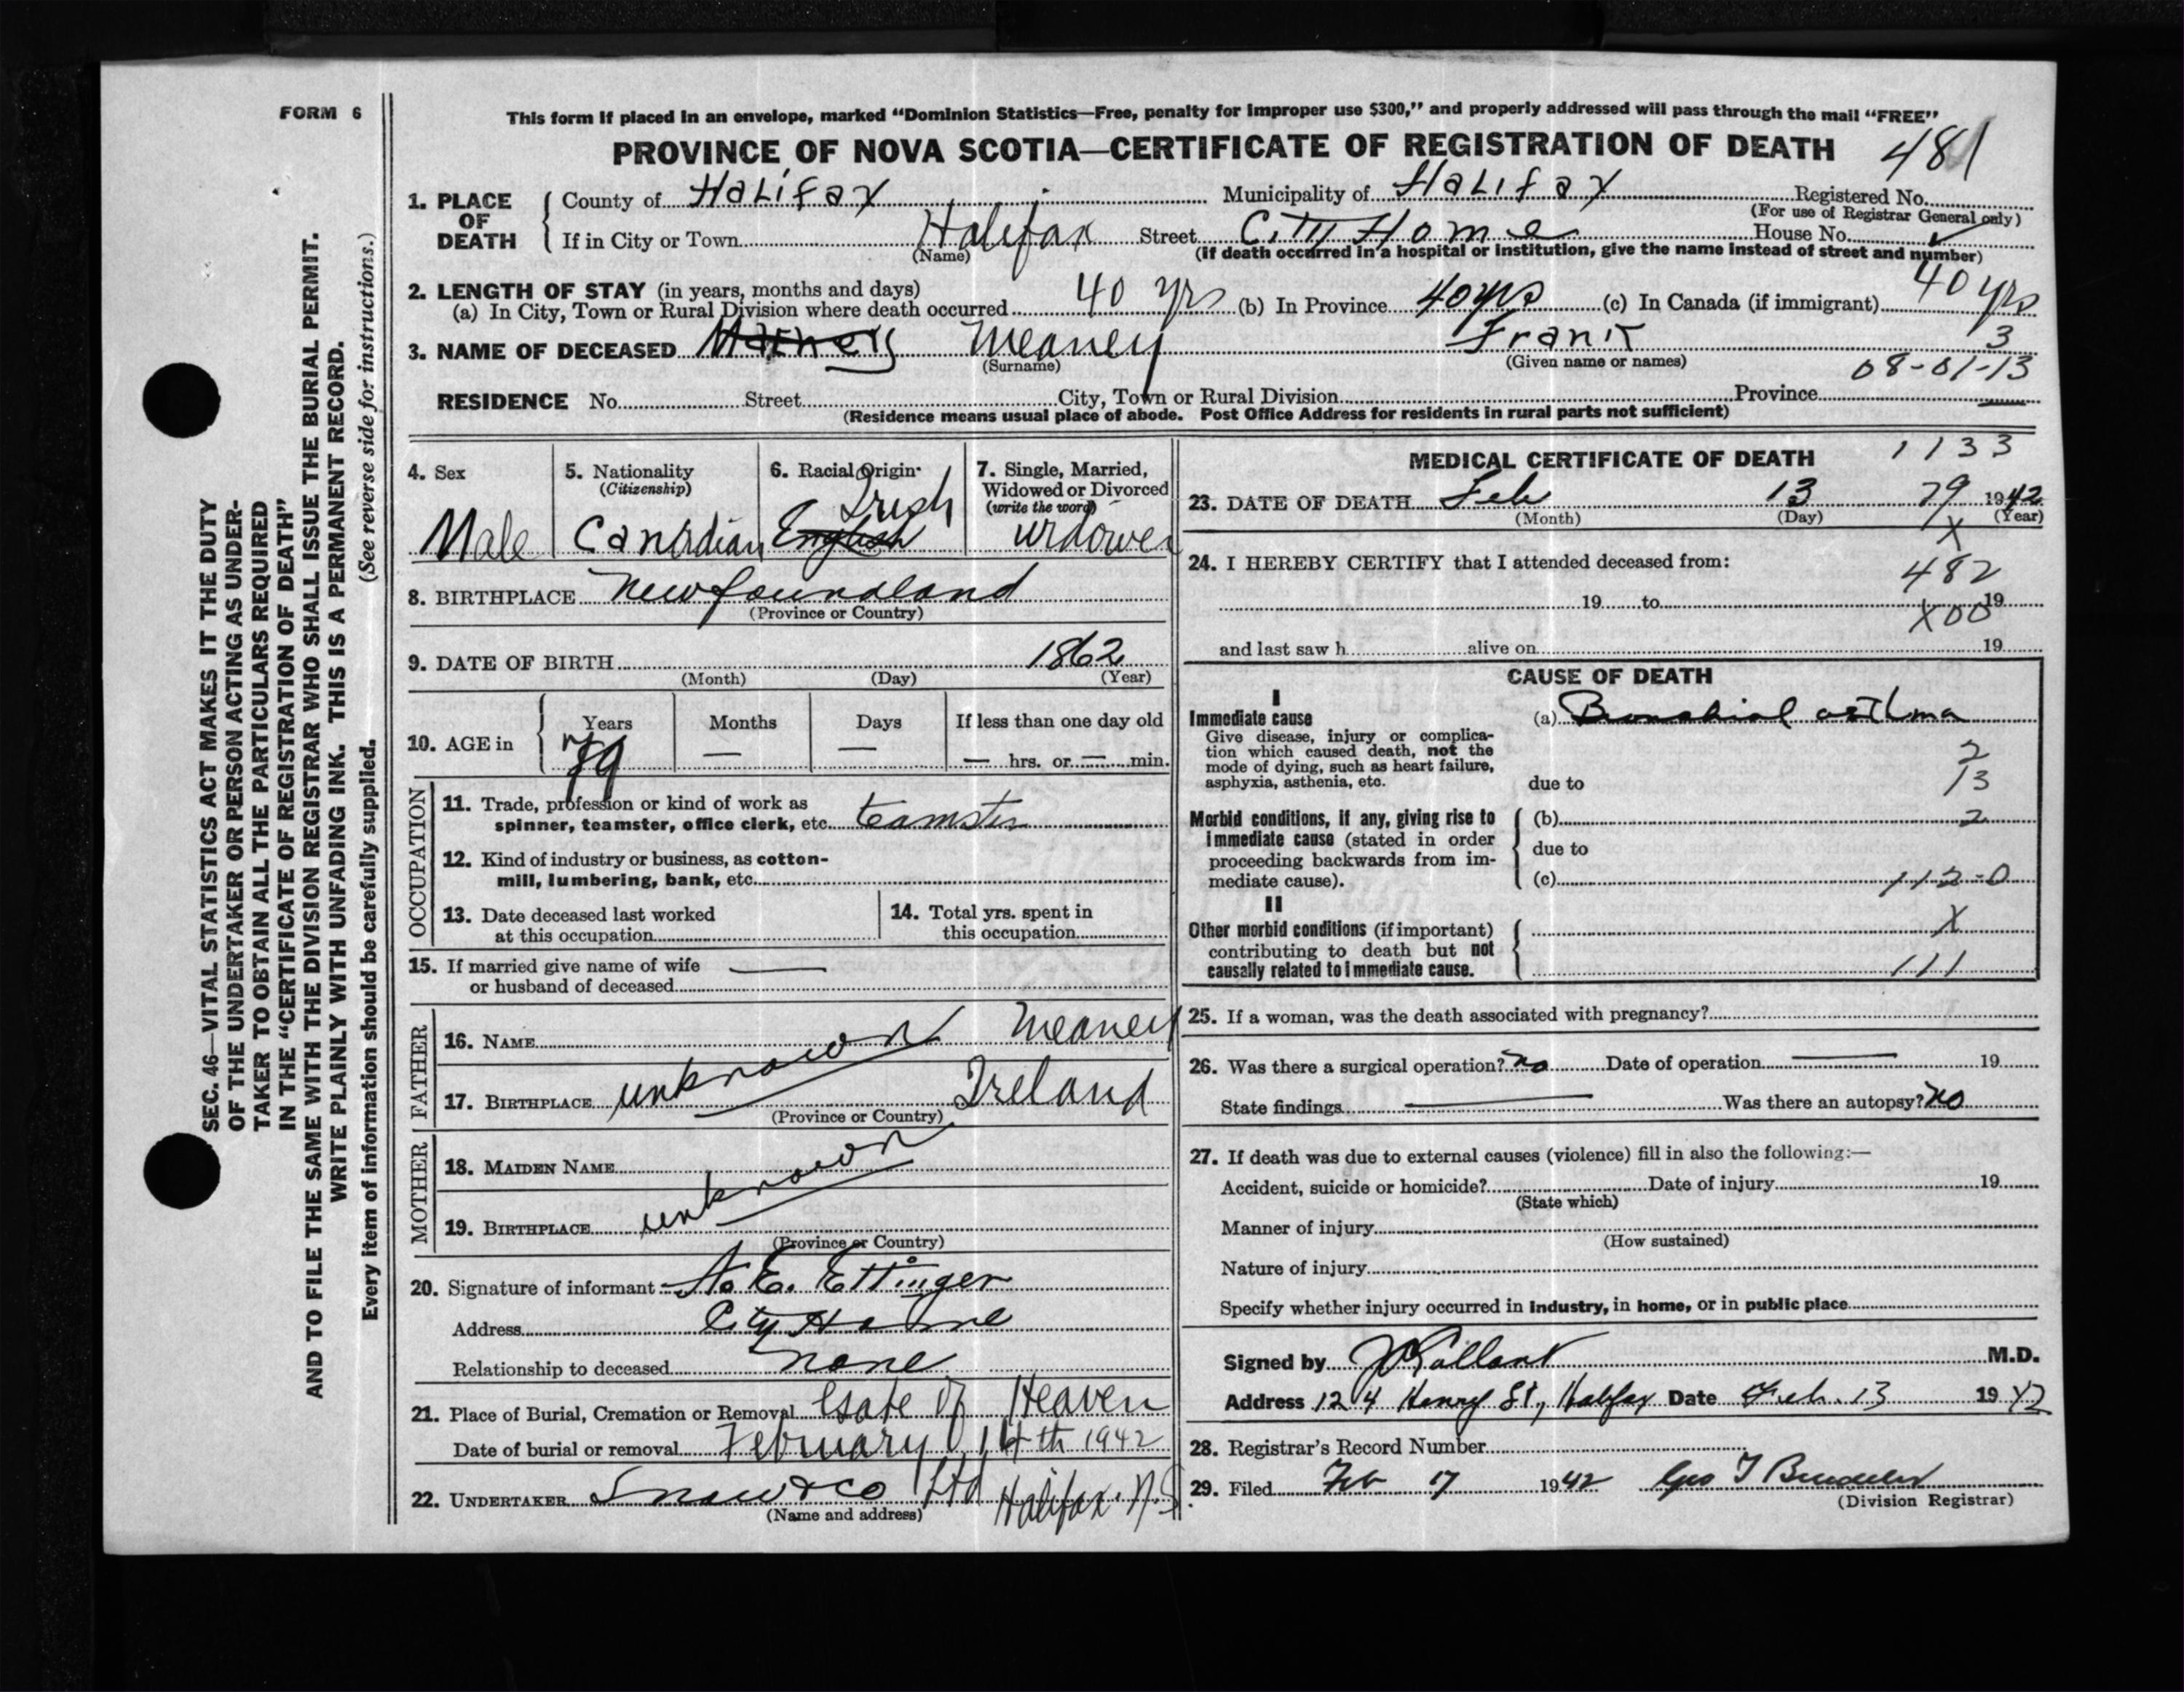 FORM 6
This form if placed in an envelope, marked “Dominion Statistics—Free, penalty for improper use $300,” and properly addressed will pass through the mail “FREE”
PROVINCE OF NOVA SCOTIA—CERTIFICATE OF REGISTRATION OF DEATH 481
1. PLACE OF DEATH
County of Halifax Municipality of Halifax Registered No.
(For use of Registrar General only)
If in City or Town Halifax Street City Home House No.
(Name) (If death occurred in a hospital or institution, give the name instead of street and number)
2. LENGTH OF STAY (in years, months and days)
(a) In City, Town or Rural Division where death occurred 40 yrs (b) In Province 40 yrs (c) In Canada (if immigrant) 40 yrs
3. NAME OF DECEASED Meaney Frank 3
(Surname) (Given name or names) 08-01-13
RESIDENCE No. Street City, Town or Rural Division Province
(Residence means usual place of abode. Post Office Address for residents in rural parts not sufficient)
4. Sex
Male
5. Nationality
(Citizenship)
Canadian
6. Racial Origin
Irish
English
7. Single, Married,
Widowed or Divorced
(write the word)
widower
8. BIRTHPLACE Newfoundland
(Province or Country)
9. DATE OF BIRTH 1862
(Month) (Day) (Year)
10. AGE in
Years Months Days If less than one day old
79 — — — hrs. or — min.
OCCUPATION
11. Trade, profession or kind of work as
spinner, teamster, office clerk, etc. teamster
12. Kind of industry or business, as cotton-
mill, lumbering, bank, etc.
13. Date deceased last worked
at this occupation
14. Total yrs. spent in
this occupation
15. If married give name of wife —
or husband of deceased
FATHER
16. NAME unknown Meaney
17. BIRTHPLACE Ireland
(Province or Country)
MOTHER
18. MAIDEN NAME unknown
19. BIRTHPLACE
(Province or Country)
20. Signature of informant E. Ettinger
Address City Home
Relationship to deceased none
21. Place of Burial, Cremation or Removal Gate of Heaven
Date of burial or removal February 14th 1942
22. UNDERTAKER Snow & Co Ltd Halifax. N.S.
(Name and address)
MEDICAL CERTIFICATE OF DEATH 1133
23. DATE OF DEATH Feb 13 79 1942
(Month) (Day) (Year)
X
24. I HEREBY CERTIFY that I attended deceased from:
482
19 to 19
X00
and last saw h alive on 19
CAUSE OF DEATH
I
Immediate cause
Give disease, injury or complica-
tion which caused death, not the
mode of dying, such as heart failure,
asphyxia, asthenia, etc.
(a) Bronchial asthma
2
13
due to
Morbid conditions, if any, giving rise to
immediate cause (stated in order
proceeding backwards from im-
mediate cause).
(b) 2
due to
(c) 112-0
II
Other morbid conditions (if important)
contributing to death but not
causally related to immediate cause.
X
111
25. If a woman, was the death associated with pregnancy?
26. Was there a surgical operation? no Date of operation — 19
State findings — Was there an autopsy? no
27. If death was due to external causes (violence) fill in also the following:—
Accident, suicide or homicide? Date of injury 19
(State which)
Manner of injury
(How sustained)
Nature of injury
Specify whether injury occurred in industry, in home, or in public place
Signed by M.D.
Address 124 Henry St, Halifax Date Feb. 13 1942
28. Registrar's Record Number
29. Filed Feb 17 1942 Geo
(Division Registrar)
SEC. 46—VITAL STATISTICS ACT MAKES IT THE DUTY
OF THE UNDERTAKER OR PERSON ACTING AS UNDER-
TAKER TO OBTAIN ALL THE PARTICULARS REQUIRED
IN THE “CERTIFICATE OF REGISTRATION OF DEATH”
AND TO FILE THE SAME WITH THE DIVISION REGISTRAR WHO SHALL ISSUE THE BURIAL PERMIT.
WRITE PLAINLY WITH UNFADING INK. THIS IS A PERMANENT RECORD.
Every item of information should be carefully supplied. (See reverse side for instructions.)